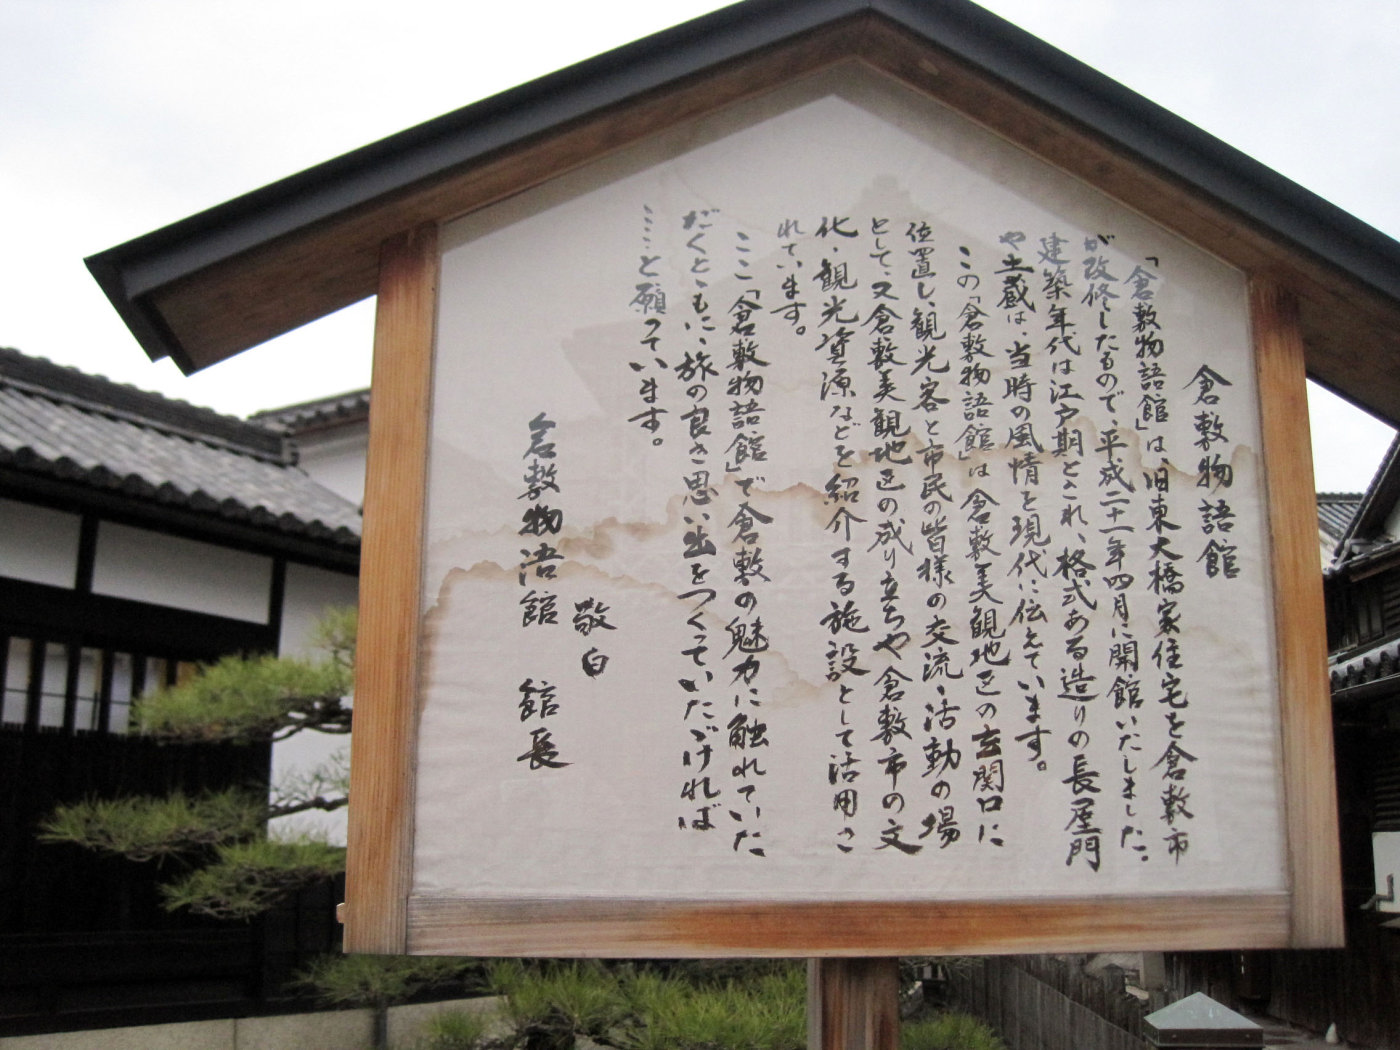 倉敷物語館
「倉敷物語館」は、旧東大橋家住宅を倉敷市
が改修したもので、平成二十一年四月に開館いたしました。
建築年代は江戸期とされ、格式ある造りの長屋門
や土蔵は、当時の風情を現代に伝えています。
この「倉敷物語館」は倉敷美観地区の玄関口に
位置し、観光客と市民の皆様の交流、活動の場
として、又倉敷美観地区の成り立ちや倉敷市の文
化・観光資源などを紹介する施設として活用さ
れています。
ここ「倉敷物語館」で倉敷の魅力に触れていた
だくとともに、旅の良き思い出をつくっていただければ
……と願っています。
敬白
倉敷物語館 館長